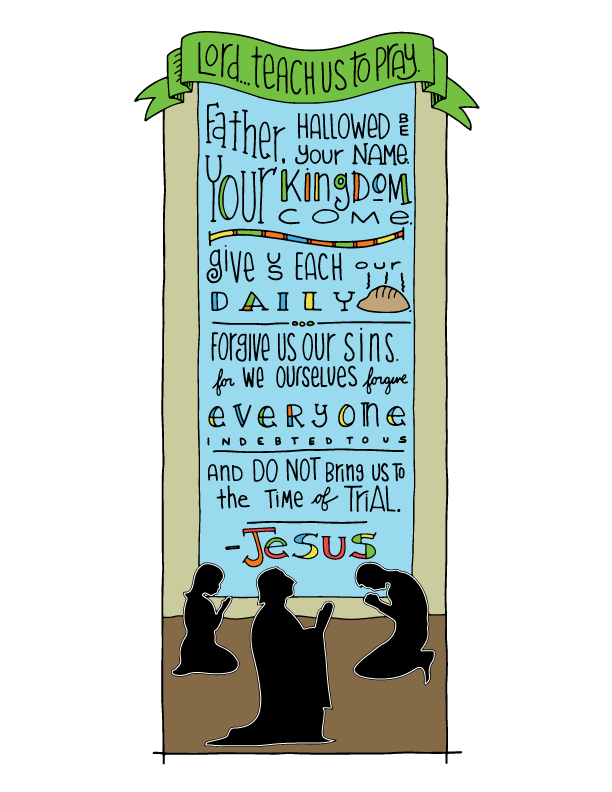 Lord... teach us to pray.
Father, HALLOWED BE
your NAME.
Your KingDOM
COME.
give us EACH our
DAILY
Forgive us our sins.
for we ourselves forgive
everyone
INDEBTED TO US
AND DO NOT Bring us To
the TIME of TriAL.
-Jesus